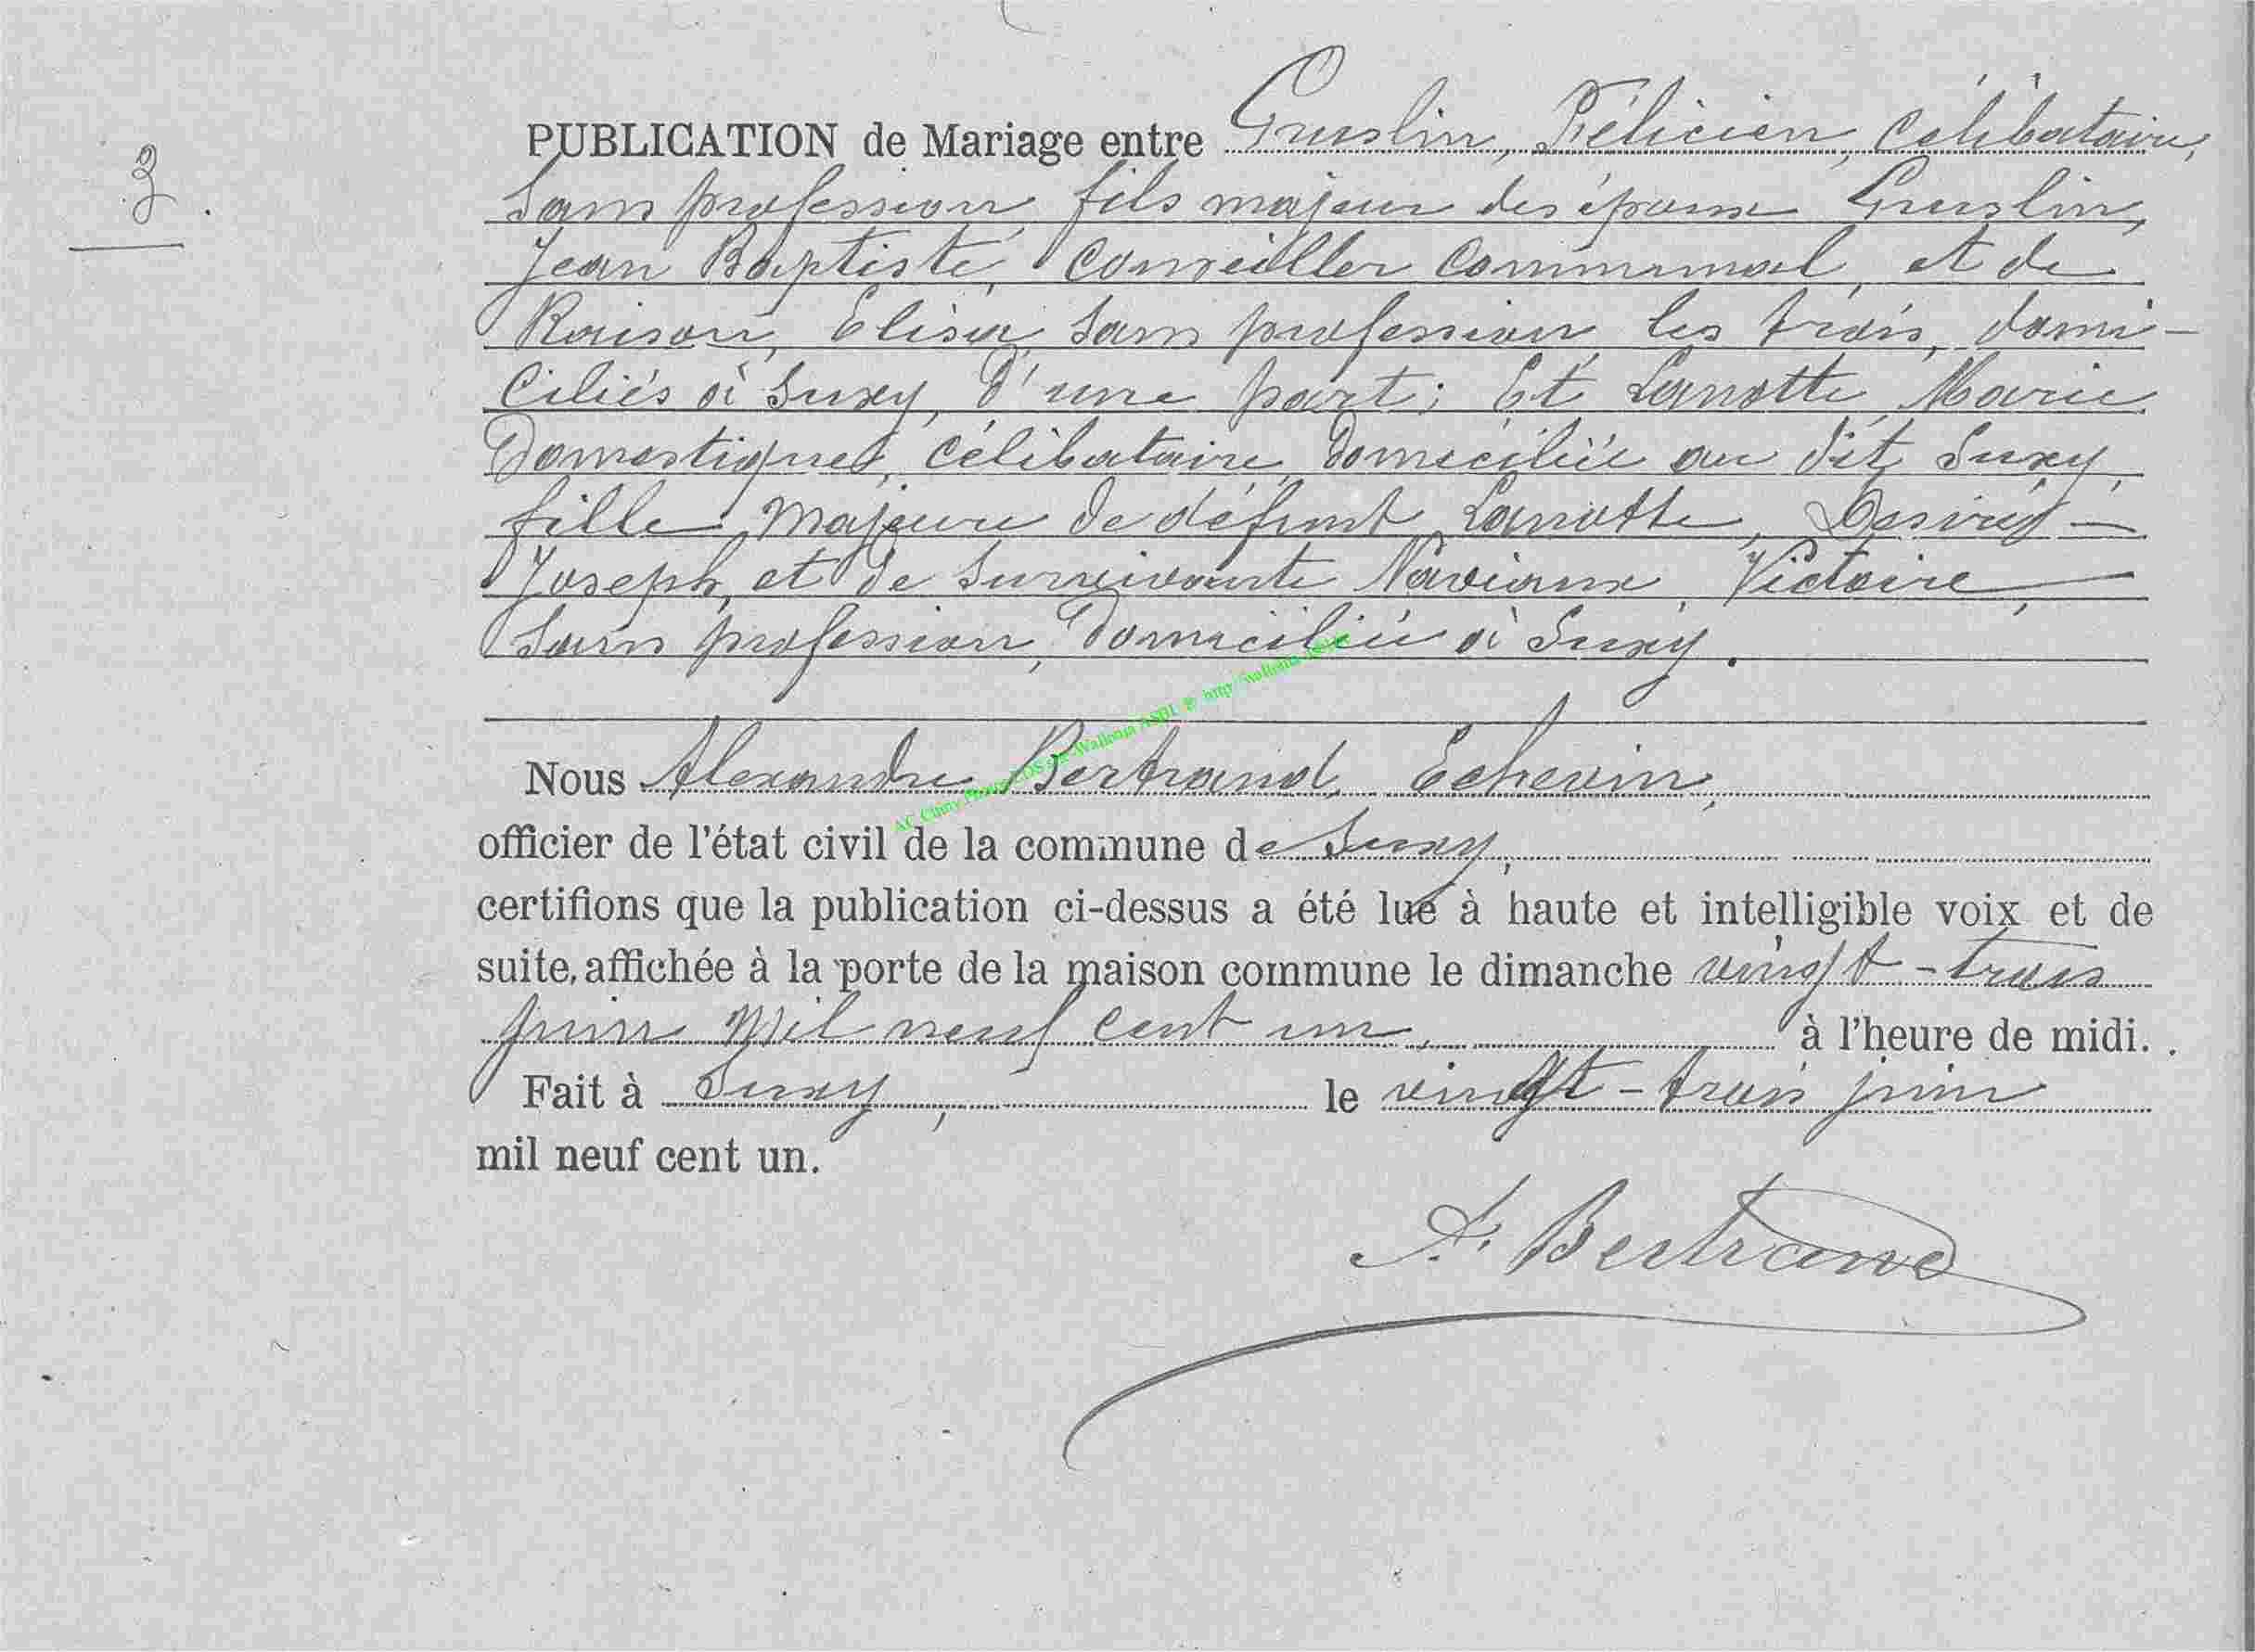 3.
PUBLICATION de Mariage entre Gruslin, Félicien, célibataire,
Sans profession, fils majeur des époux Gruslin,
Jean Baptiste, conseiller communal, et de
Raison, Elisa, sans profession, les trois, domi-
ciliés à Suxy, d'une part; Et Lanotte, Marie
Domestique, célibataire, domiciliée au dit Suxy,
fille majeure de défunt Lanotte, Desiré -
Joseph, et de survivante Naviaux, Victoire,
Sans profession, domiciliée à Suxy.
Nous Alexandre Bertrand, Echevin,
officier de l'état civil de la commune de Suxy,
certifions que la publication ci-dessus a été lue à haute et intelligible voix et de
suite, affichée à la porte de la maison commune le dimanche vingt-trois
juin mil neuf cent un, à l'heure de midi.
Fait à Suxy, le vingt-trois juin
mil neuf cent un.
A. Bertrand